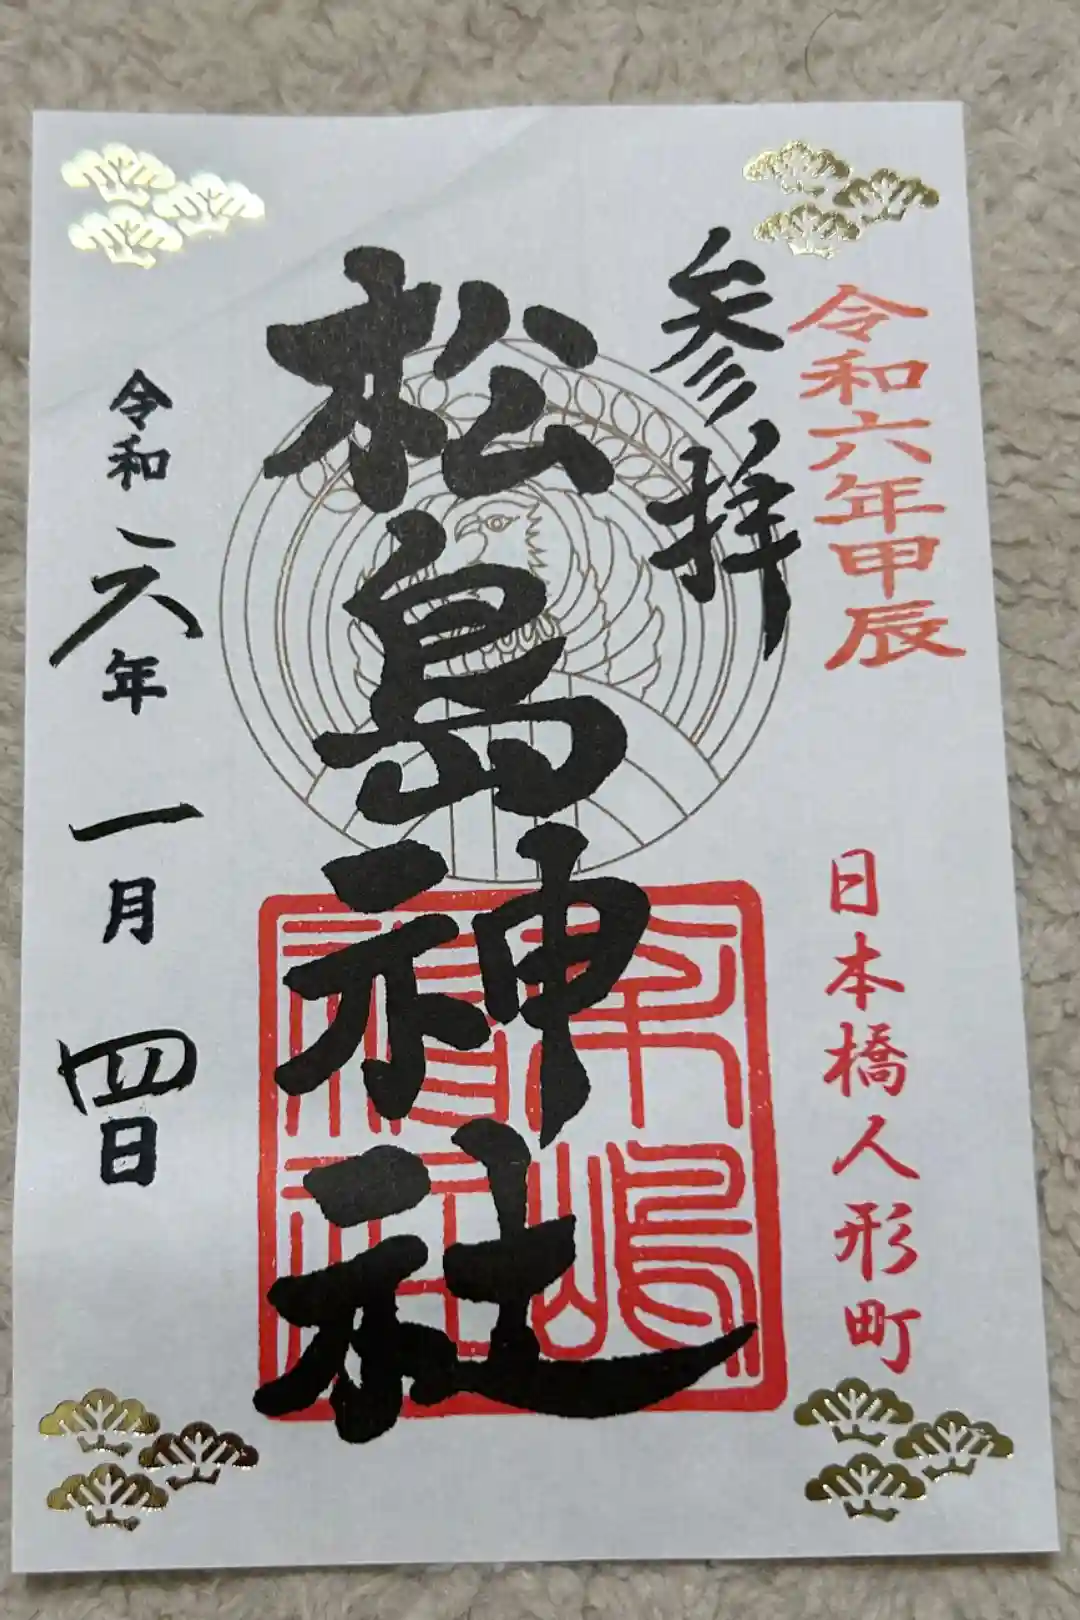 令和六年甲辰
日本橋人形町
参拝
松島神社
令和六年一月四日